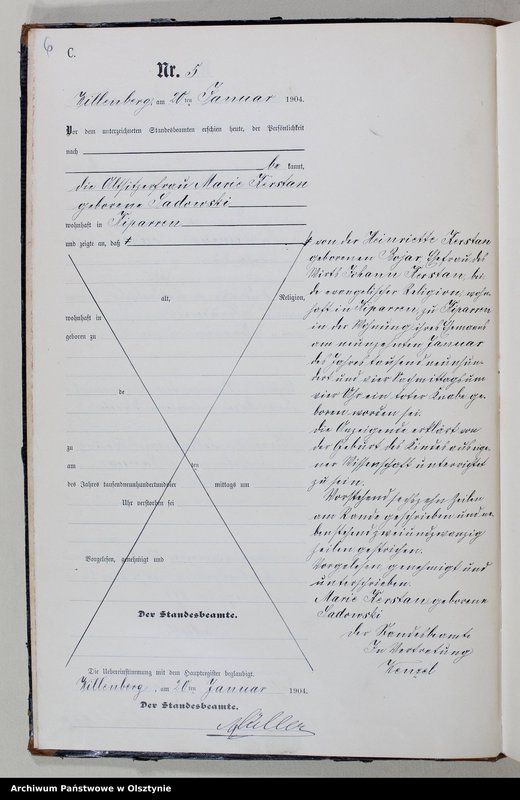 6
C.
Nr. 5
Willenberg, am 20ten Januar 1904.
Vor dem unterzeichneten Standesbeamten erschien heute, der Persönlichkeit
nach
be kannt,
die Altsitzerfrau Marie Kerstan
geborene Sadowski
wohnhaft in Kiparren
und zeigte an, daß
alt, Religion,
wohnhaft in
geboren zu
de
zu
am ten
des Jahres tausendneunhundertundvier mittags um
Uhr verstorben sei
Vorgelesen, genehmigt und
Der Standesbeamte.
Die Uebereinstimmung mit dem Hauptregister beglaubigt.
Willenberg, am 20ten Januar 1904.
Der Standesbeamte.
Müller
von der Heinriette Kerstan
geborenen Bojar, Ehefrau des
Wirts Johann Kerstan, bei-
de evangelischer Religion, wohn-
haft in Kiparren, zu Kiparren
in der Wohnung ihres Ehemanns
am neunzehnten Januar
des Jahres tausend neunhun-
dert und vier Nachmittags um
vier Uhr ein toter Knabe ge-
boren worden sei.
Die Anzeigende erklärt von
der Geburt des Kindes aus eige-
ner Wissenschaft unterrichtet
zu sein.
Vorstehend sechszehn Zeilen
am Rande geschrieben und ne-
benstehend zweiundzwanzig
Zeilen gestrichen.
Vorgelesen, genehmigt und
unterschrieben.
Marie Kerstan geborene
Sadowski
Der Standesbeamte
In Vertretung
Wenzel
Archiwum Państwowe w Olsztynie